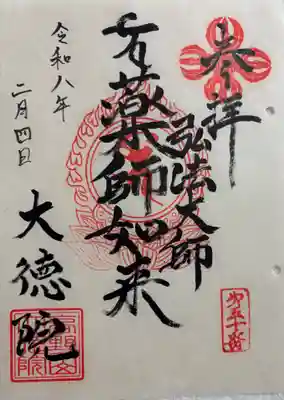 奉拝
弘法大師
薬師如来
令和八年
二月四日
大徳院